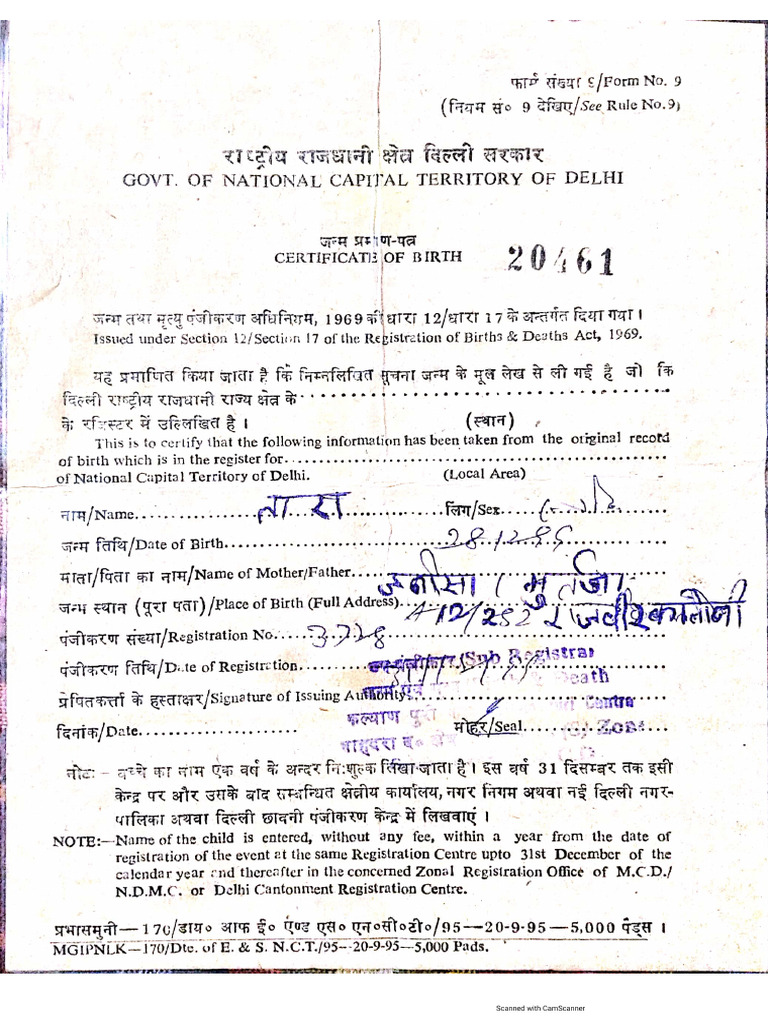 फार्म संख्या 9/Form No. 9
(नियम सं० 9 देखिए/See Rule No.9)
राष्ट्रीय राजधानी क्षेत्र दिल्ली सरकार
GOVT. OF NATIONAL CAPITAL TERRITORY OF DELHI
जन्म प्रमाण-पत्र
CERTIFICATE OF BIRTH
20461
जन्म तथा मृत्यु पंजीकरण अधिनियम, 1969 की धारा 12/धारा 17 के अन्तर्गत दिया गया।
Issued under Section 12/Section 17 of the Registration of Births & Deaths Act, 1969.
यह प्रमाणित किया जाता है कि निम्नलिखित सूचना जन्म के मूल लेख से ली गई है जो कि
दिल्ली राष्ट्रीय राजधानी राज्य क्षेत्र के
के रजिस्टर में उल्लिखित है। (स्थान)
This is to certify that the following information has been taken from the original record
of birth which is in the register for
of National Capital Territory of Delhi. (Local Area)
नाम/Name तारा लिंग/Sex
जन्म तिथि/Date of Birth
माता/पिता का नाम/Name of Mother/Father मुर्तजा
जन्म स्थान (पूरा पता)/Place of Birth (Full Address)
पंजीकरण संख्या/Registration No. 3728
पंजीकरण तिथि/Date of Registration (Sub Registrar
प्रेषितकर्त्ता के हस्ताक्षर/Signature of Issuing Authority Death
कल्याण पुरी Centre
दिनांक/Date मोहर/Seal Zone
नोट: – बच्चे का नाम एक वर्ष के अन्दर नि:शुल्क लिखा जाता है। इस वर्ष 31 दिसम्बर तक इसी
केन्द्र पर और उसके बाद सम्बन्धित क्षेत्रीय कार्यालय, नगर निगम अथवा नई दिल्ली नगर-
पालिका अथवा दिल्ली छावनी पंजीकरण केन्द्र में लिखवाएं।
NOTE:—Name of the child is entered, without any fee, within a year from the date of
registration of the event at the same Registration Centre upto 31st December of the
calendar year and thereafter in the concerned Zonal Registration Office of M.C.D./
N.D.M.C. or Delhi Cantonment Registration Centre.
प्रभासमुनी—170/डाय० आफ ई० एण्ड एस० एन०सी०टी०/95—20-9-95—5,000 पैड्स।
MGIPNLK—170/Dte. of E. & S. N.C.T./95—20-9-95—5,000 Pads.
Scanned with CamScanner